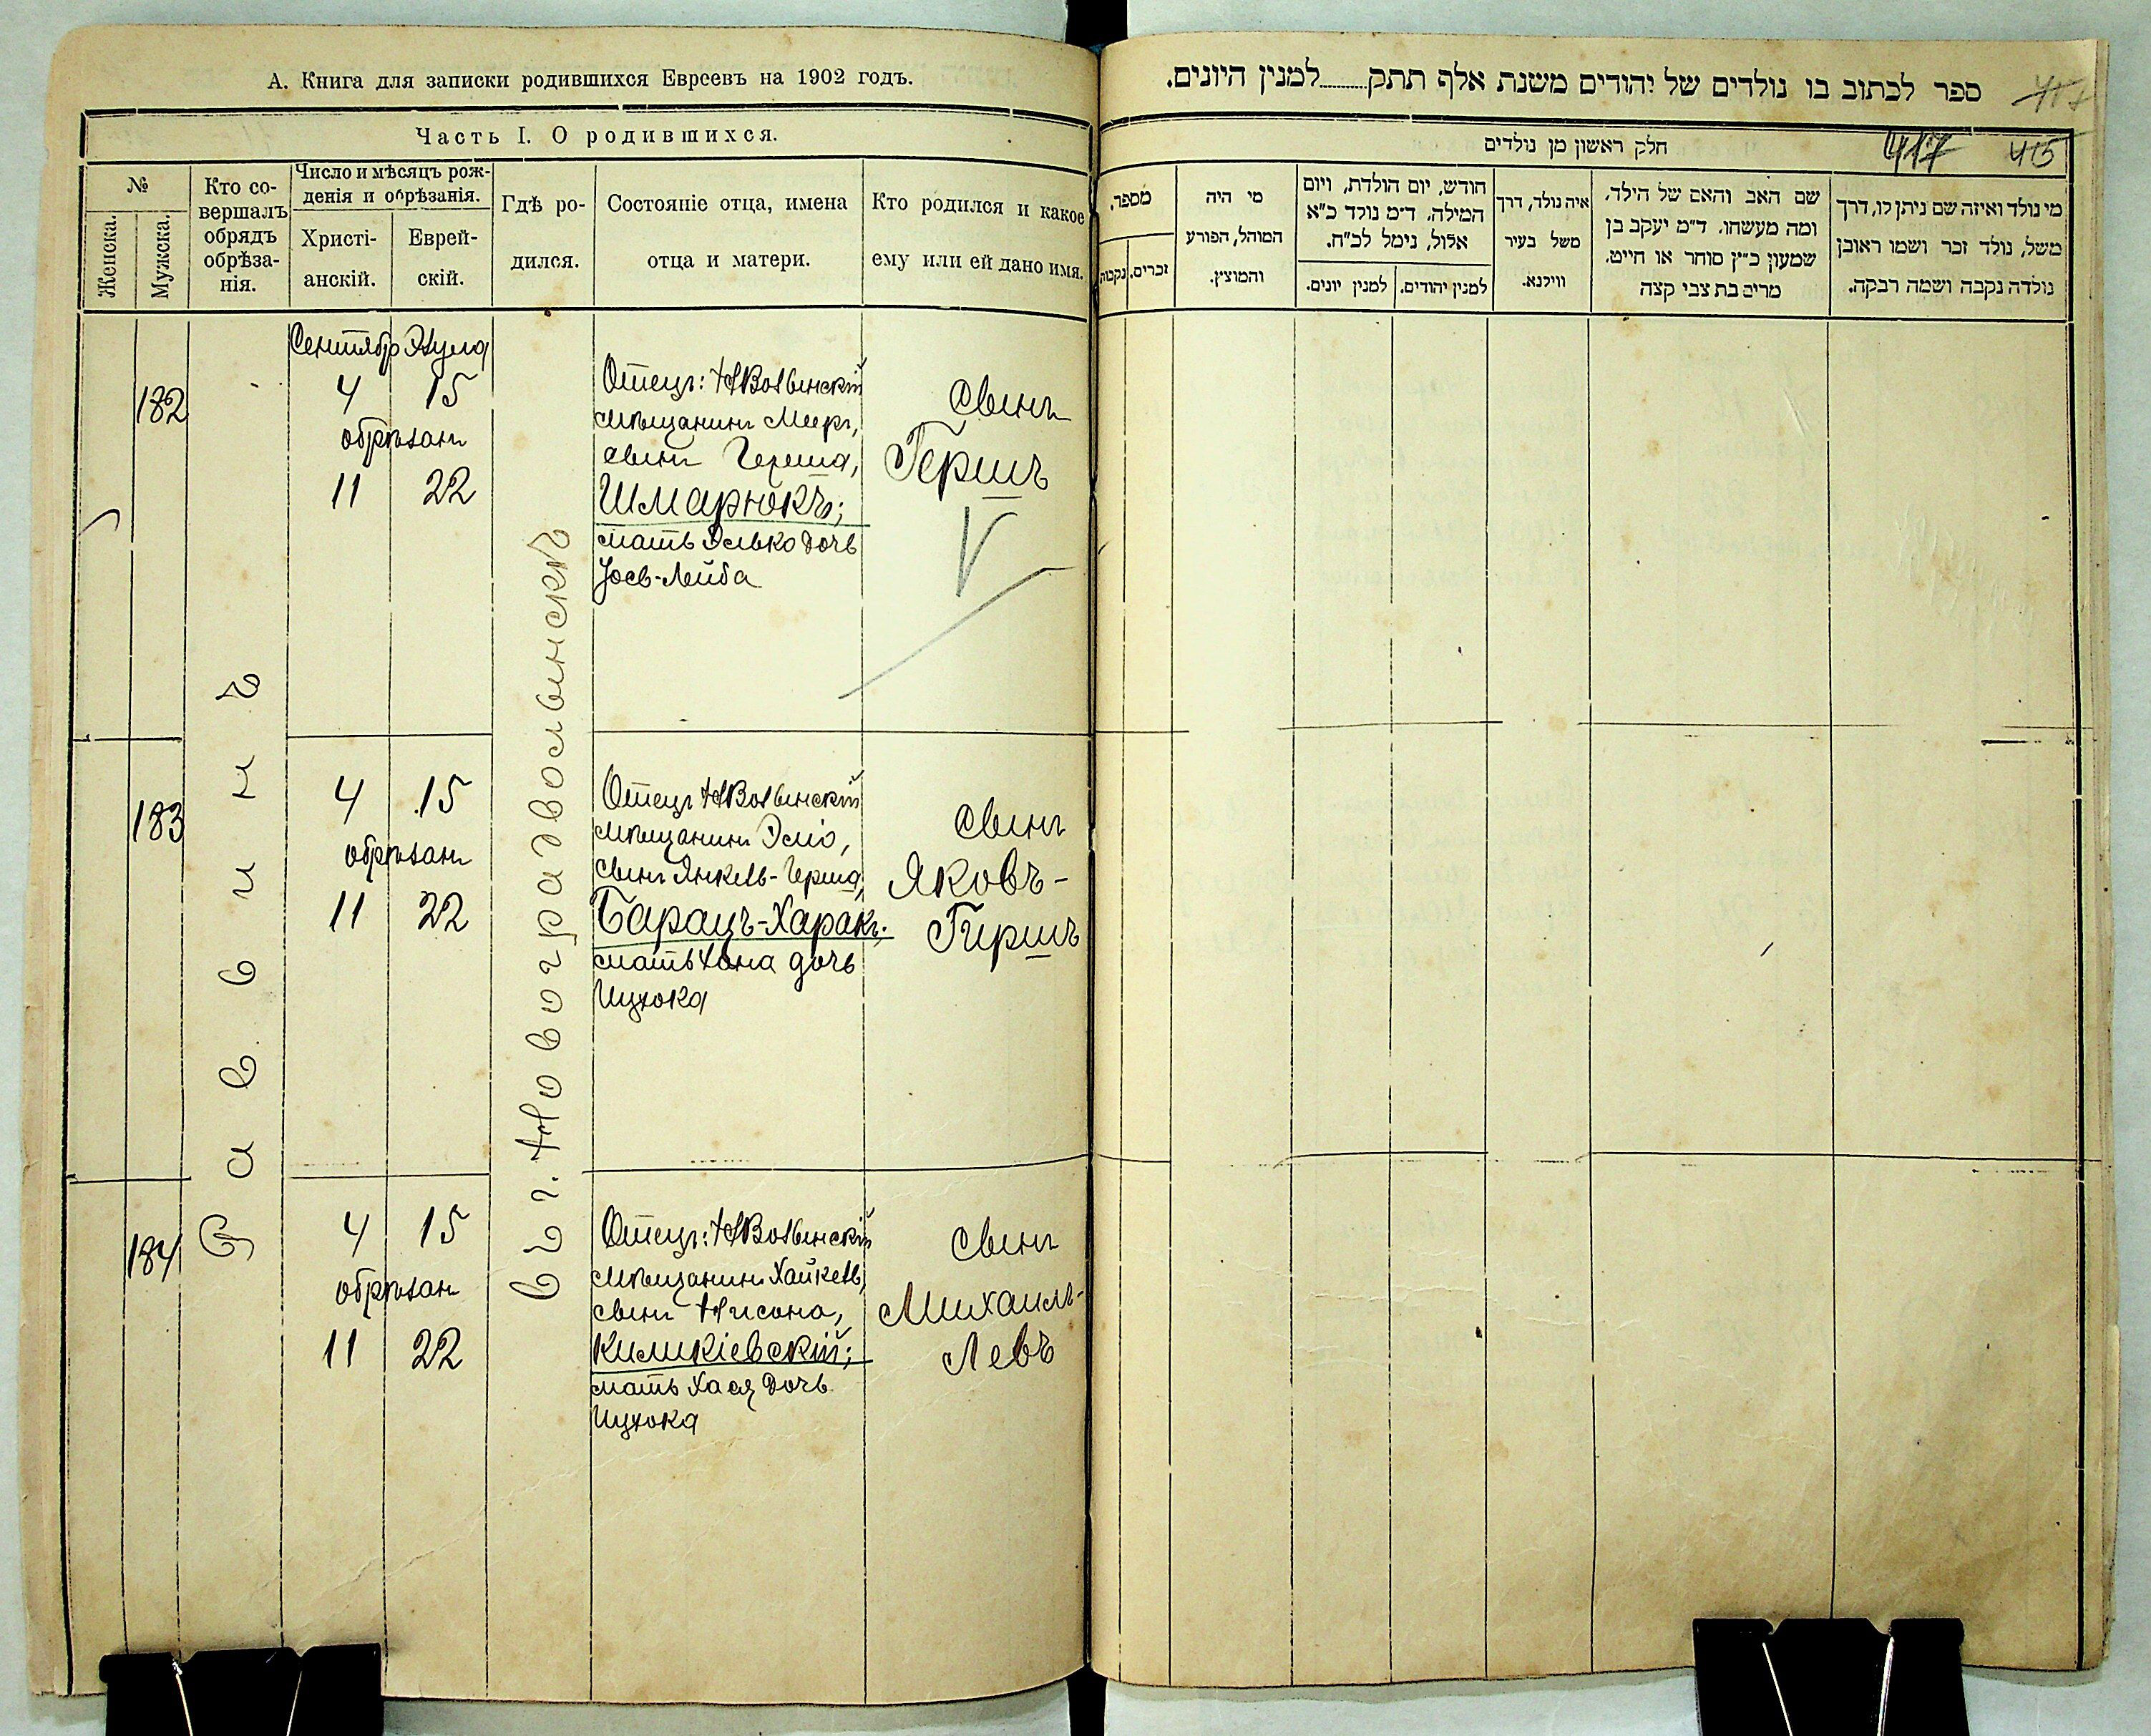 А. Книга для записки родившихся Евреевъ на 1902 годъ.
Часть I. О родившихся.
№
Женска.
Мужска.
Кто со-
вершалъ
обрядъ
обрѣза-
нія.
Число и мѣсяцъ рож-
денія и обрѣзанія.
Христі-
анскій.
Еврей-
скій.
Гдѣ ро-
дился.
Состояніе отца, имена
отца и матери.
Кто родился и какое
ему или ей дано имя.
Раввинъ
въ г. Новоградволынскѣ
182
Сентябр Элула
4 15
обрѣзан
11 22
Отецъ: НВолынскій
мѣщанинъ Меер,
сынъ Герша,
Шмарюкъ;
мать Элька дочь
Іось-Лейба
Сынъ
Гершъ
V
183
4 15
обрѣзан
11 22
Отецъ НВолынскій
мѣщанинъ Эліо,
сынъ Янкель-Герша,
Барацъ-Харакъ.
мать Хана дочь
Ицхока
Сынъ
Яковъ-
Гиршъ
184
4 15
обрѣзан
11 22
Отецъ: НВолынскій
мѣщанинъ Хайкель,
сынъ Нисона,
Киликіевскій;
мать Хася дочь
Ицхока
Сынъ
Михаилъ-
Левъ
ספר לכתוב בו נולדים של יהודים משנת אלף תתק........למנין היונים.
417
חלק ראשון מן נולדים
417 415
מספר.
זכרים.
נקבות
מי היה
המוהל, הפורע
והמוצץ.
חודש, יום הולדת, ויום
המילה, ד״מ נולד כ״א
אלול, נימל לכ״ח.
למנין יונים.
למנין יהודים.
איה נולד, דרך
משל בעיר
ווילנא.
שם האב והאם של הילד,
ומה מעשהו. ד״מ יעקב בן
שמעון כ״ץ סוחר או חייט.
מרים בת צבי קצה
מי נולד ואיזה שם ניתן לו, דרך
משל, נולד זכר ושמו ראובן
נולדה נקבה ושמה רבקה.